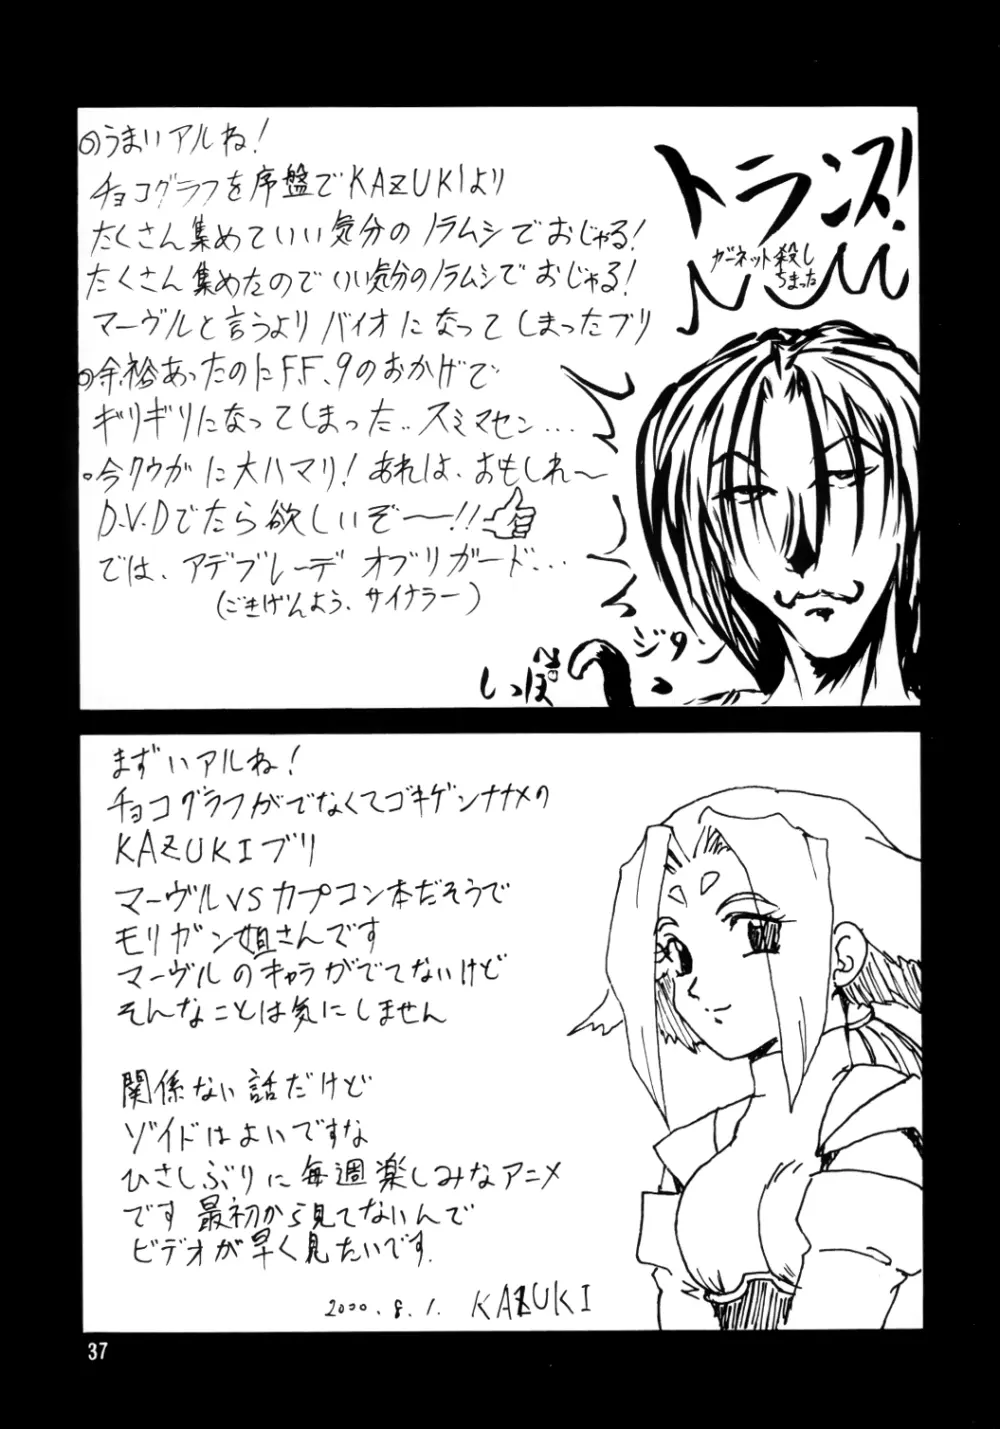 のうまいアルね!
チョコグラフを序盤でKAZUKIより
たくさん集めていい気分のノラムシでおじゃる!
たくさん集めたのでいい気分のノラムシでおじゃる!
マーヴルと言うよりバイオになってしまったブリ
の余裕あったのにF.F.9のおかげで
ギリギリになってしまった..スミマセン...
・今クウガに大ハマリ!あれは、おもしれ〜
D.V.Dでたら欲しいぞ〜!!
では、アデブレーデ オブリガード...
(ごきげんよう、サイナラー)
トランス!
ガーネット殺し
ちまった
ジタン
しっぽ
まずいアルね!
チョコグラフがでなくてゴキゲンナナメの
KAZUKIブリ
マーヴルVSカプコン本だそうで
モリガン姐さんです
マーヴルのキャラがでてないけど
そんなことは気にしません
関係ない話だけど
ゾイドはよいですな
ひさしぶりに毎週楽しみなアニメ
です 最初から見てないんで
ビデオが早く見たいです.
2000.8.1. KAZUKI
37